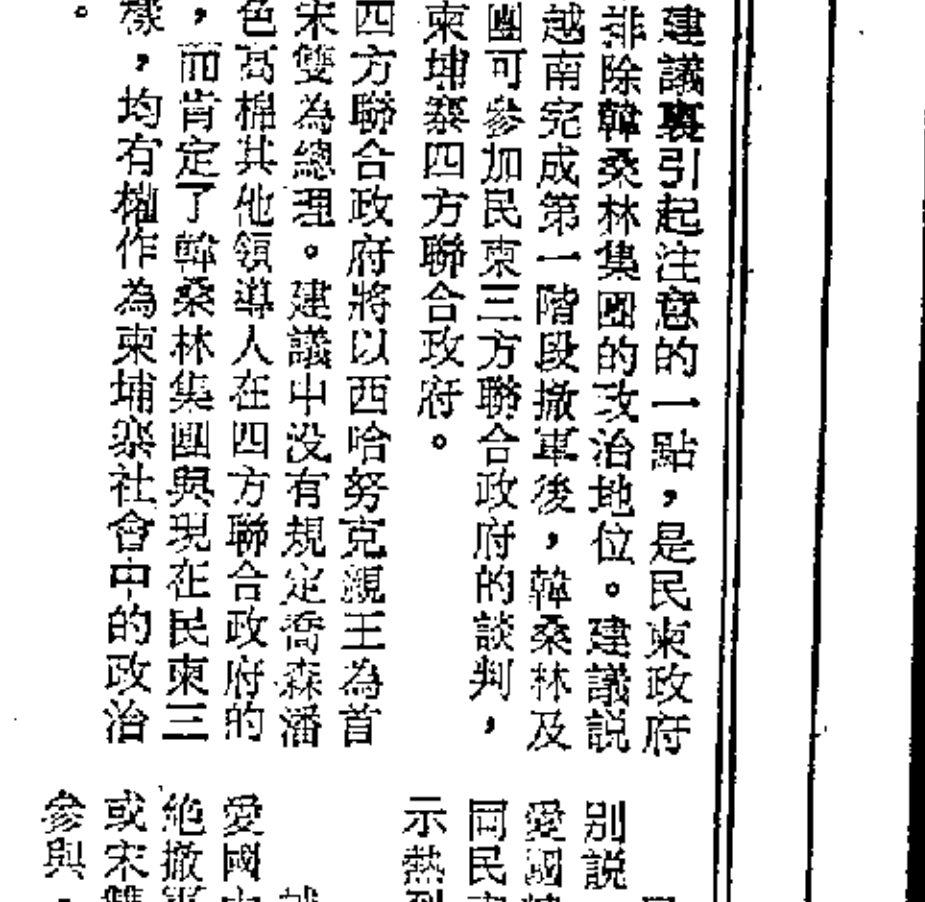 建議裏引起注意的一點，是民柬政府
排除韓桑林集團的政治地位。建議説
越南完成第一階段撤軍後，韓桑林及
團可參加民柬三方聯合政府的談判，
柬埔寨四方聯合政府。
四方聯合政府將以西哈努克親王為首
宋雙為總理。建議中没有規定喬森潘
色高棉其他領導人在四方聯合政府的
，而肯定了韓桑林集團與現在民柬三
樣，均有權作為柬埔寨社會中的政治
。
別説
愛國
同民
示熱
愛國
絶撤軍
或宋雙
參與，